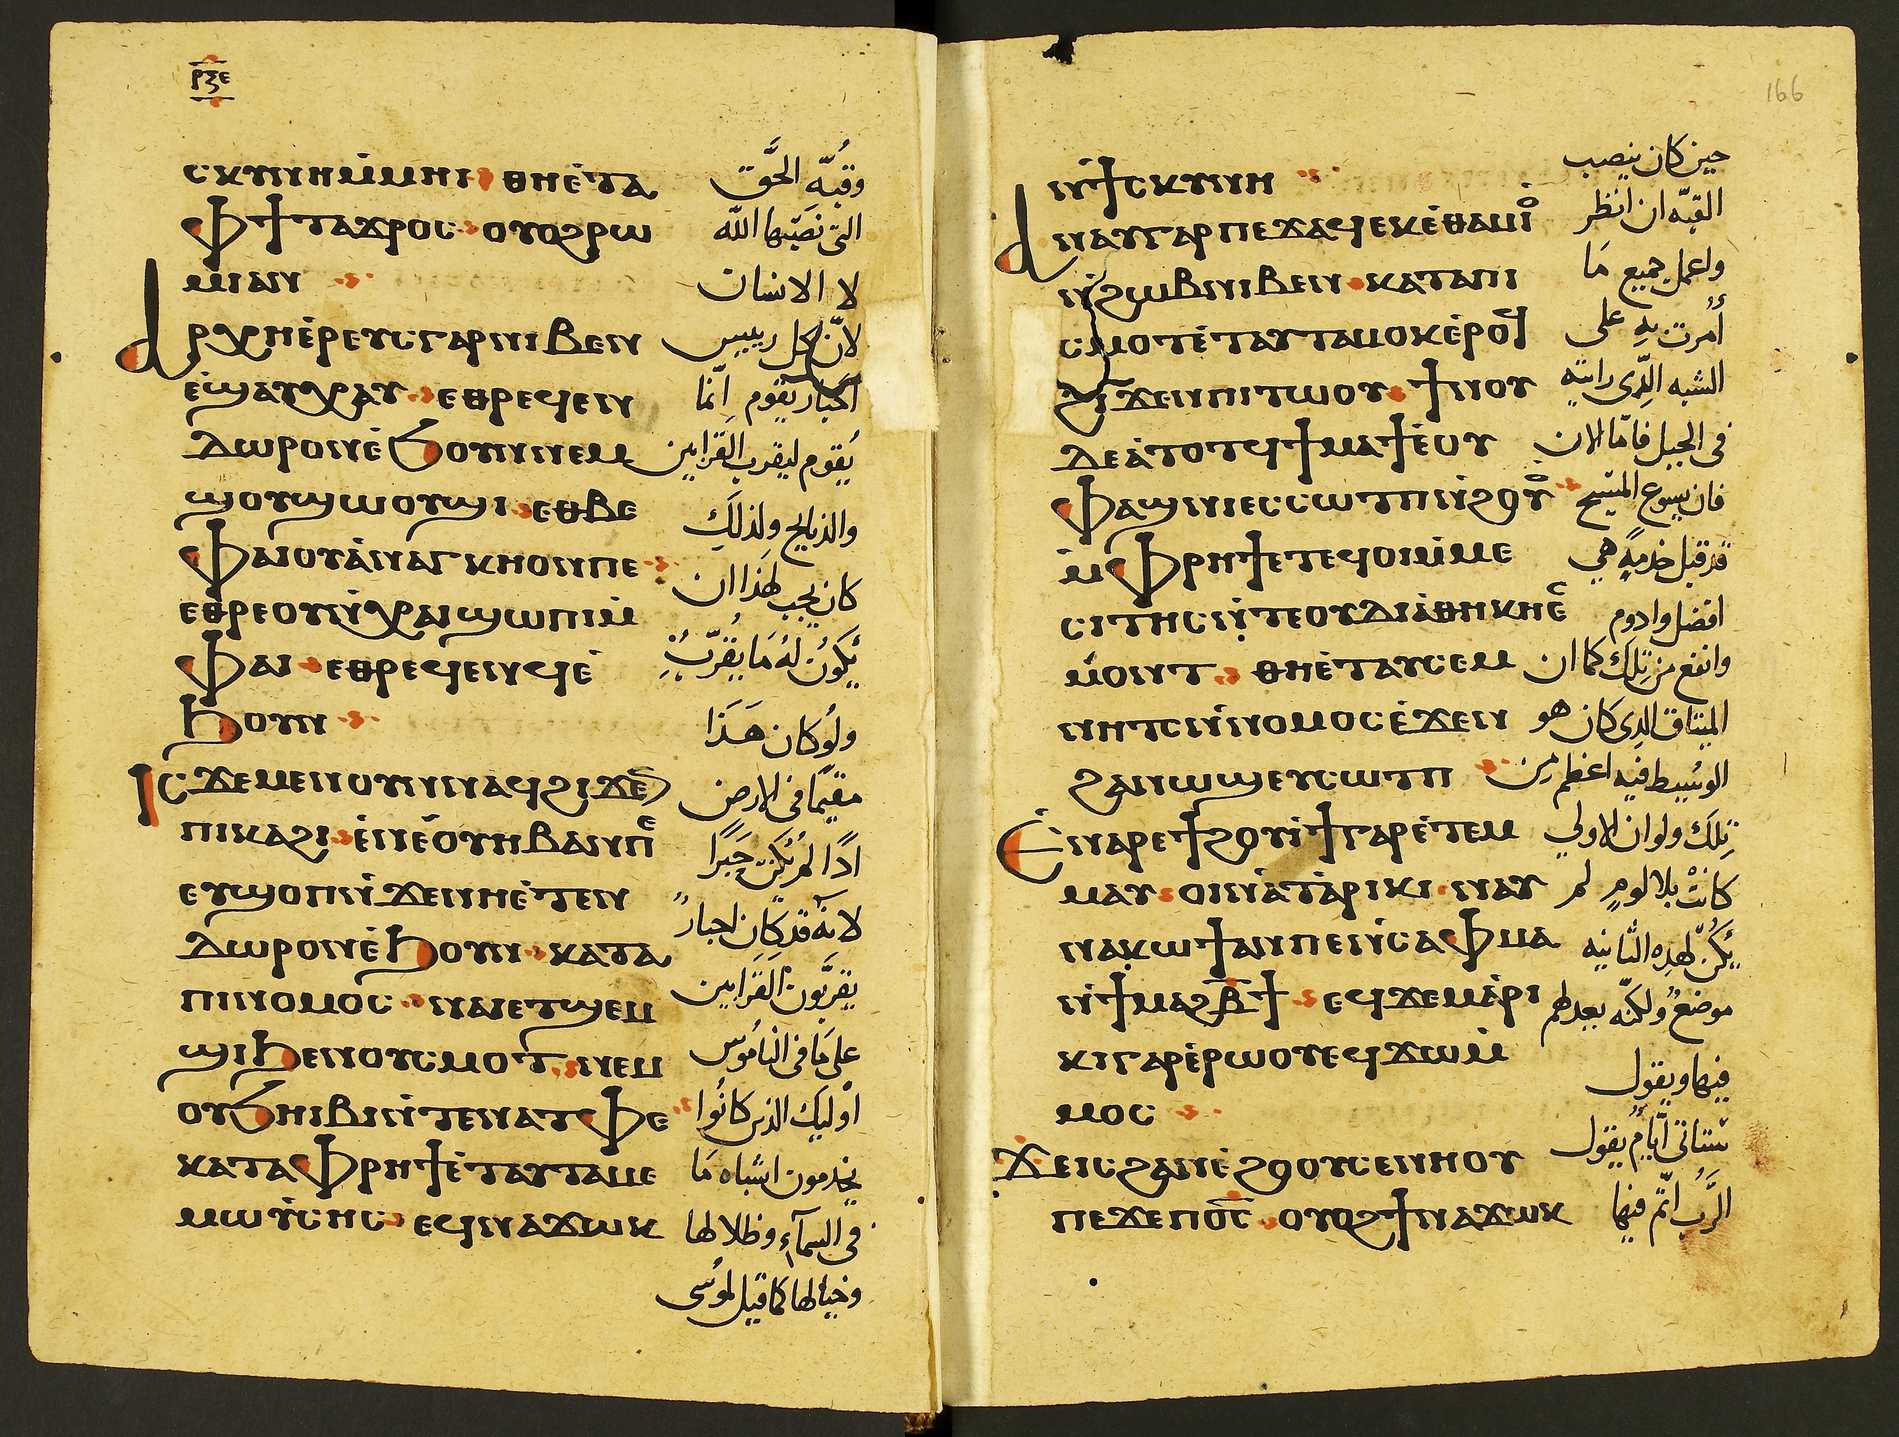 ⲣⲝⲉ
ⲥⲕⲩⲛⲏ ⲙ̇ⲙⲏⲓ ⲑⲏⲉ̇ⲧⲁ
ⲫϯ ⲧⲁϫⲣⲟⲥ ⲟⲩⲟϩ ⲣⲱ
ⲙⲓ ⲁⲛ
ⲁⲣⲭⲏⲉ̇ⲣⲉⲩⲥ ⲅⲁⲣ ⲛⲓⲃⲉⲛ
ⲉ̇ϣⲁⲩⲭⲁⲩ ⲉⲑⲣⲉϥⲉⲛ
ⲇⲱⲣⲟⲛ ⲉ̇ϧⲟⲩⲛ ⲛⲉⲙ
ϣⲟⲩϣⲱⲟⲩϣⲓ ⲉⲑⲃⲉ
ⲫⲁⲓ ⲟⲩⲁ̇ⲛⲁⲅⲕⲏ ⲟⲛ ⲡⲉ
ⲉⲑⲣⲉ ⲟⲩⲛ̇ⲭⲁⲓ ϣⲱⲡⲓ ⲙ̇
ⲫⲁⲓ ⲉⲑⲣⲉϥⲉⲛϥ ⲉ̇
ϧⲟⲩⲛ
ⲓⲥϫⲉ ⲙⲉⲛ ⲟⲩⲛ ⲛⲁϥϩⲓϫⲉ̅
ⲡⲓⲕⲁϩⲓ ⲉ̇ⲛⲉ ⲟⲩⲏⲃ ⲁⲛ ⲡⲉ̅
ⲉⲩϣⲟⲡ ⲛ̇ϫⲉ ⲛⲏⲉ̇ⲧⲉⲛ
ⲇⲱⲣⲟⲛ ⲉ̇ϧⲟⲩⲛ ⲕⲁⲧⲁ
ⲡⲓⲛⲟⲙⲟⲥ ⲛⲁⲓ ⲉⲧϣⲉⲙ
ϣⲓ ϧⲉⲛ ⲟⲩⲥⲙⲟⲧ ⲛⲉⲙ
ⲟⲩϧⲏⲓⲃⲓ ⲛ̇ⲧⲉ ⲛⲁ ⲧⲫⲉ
ⲕⲁⲧⲁ ⲫⲣⲏϯ ⲉ̇ⲧⲁⲩⲧⲁⲙⲉ
ⲙⲱⲩ̇ⲥⲏⲥ ⲉϥⲛⲁϫⲱⲕ
وقبّه الحَّق
التى نصَبّها الله
لا الانسان
لانّ كل رييس
احبار يقوم اِنّما
يُقوم ليقرب القرابين
والذبايح ولذلك
كان يجب لهذا ان
يَكونُ لهُ مَا يُقرّبُه
ولو كان هَذَا
مقيمًا فى الارض
ادًا لم يكن حَبرًا
لانّه قد كان احبارٌ
يقرّبون القَرابين
على مَا فى النامُوس
اوليك الذين كانُوا
يخدمون اشباه مَا
فى السمآء وظلالها
وخيالها كما قيل لموُسى
166
ⲛ̇ϯⲥⲕⲩⲛⲏ
ⲁⲛⲁⲩ ⲅⲁⲣ ⲡⲉϫⲁϥ ⲉⲕⲉ̇ⲑⲁⲙⲓⲟ̇
ⲛ̇ϩⲱⲃ ⲛⲓⲃⲉⲛ ⲕⲁⲧⲁ ⲡⲓ
ⲥⲙⲟⲧ ⲉ̇ⲧⲁⲩⲧⲁⲙⲟⲕ ⲉ̇ⲣⲟϥ
ϩⲓϫⲉⲛ ⲡⲓⲧⲱⲟⲩ ϯⲛⲟⲩ
ⲇⲉ ⲁ̇ⲧⲟⲧϥ ϯⲙⲁϯ ⲉ̇ⲟⲩ
ⲫⲁϣⲛⲓ ⲉⲥⲥⲱⲧⲡ ⲛ̇ϩⲟⲩⲟ̇
ⲙ̇ⲫⲣⲏϯ ⲉⲧⲉϥⲟⲓ ⲙ̇ⲙⲉ
ⲥⲓⲧⲏⲥ ⲛ̇ⲧⲉ ⲟⲩⲇⲓⲁⲑⲏⲕⲏ ⲉ̅
ⲙ̇ⲟⲛⲧ ⲑⲏⲉ̇ⲧⲁⲩⲥⲉⲙ
ⲛⲏⲧⲥ ⲛ̇ⲛⲟⲙⲟⲥ ⲉ̇ϫⲉⲛ
ϩⲁⲛⲱϣ ⲉⲩⲥⲱⲧⲡ
ⲉ̇ⲛⲁⲣⲉ ϯϩⲟⲩⲓ̇ϯ ⲅⲁⲣ ⲉ̇ⲧⲉⲙ
ⲙⲁⲩ ⲟⲓ ⲛ̇ⲁⲧⲁ̇ⲣⲓⲕⲓ ⲛⲁⲩ
ⲛⲁⲕⲱϯ ⲁⲛ ⲡⲉ ⲛ̇ⲥⲁ ⲫⲙⲁ
ⲛ̇ϯⲙⲁϩⲃ̅ϯ ⲉϥϫⲉⲙⲁ̇ⲣⲓ
ⲕⲓ ⲅⲁⲣ ⲉ̇ⲣⲱⲟⲩ ⲉϥϫⲱ ⲙ̇
ⲙⲟⲥ
ϫⲉ ⲓⲥ ϩⲁⲛⲉ̇ϩⲟⲟⲩ ⲥⲉⲛⲏⲟⲩ
ⲡⲉϫⲉ ⲡⲟ̅ⲥ̅ ⲟⲩⲟϩ ϯⲛⲁϫⲱⲕ
حين كان ينصب
القبّه ان انظر
واعمل جميع مَا
أمرت به على
الشبه الّذى رايته
فى الجبل فامّا الان
فان يسوع المسيح
قد قبل خدمةً هي
افضل وادوم
وانفع من تلك كما ان
الميتاق الذى كان هو
الوسُيط فيه اعظم مِن
تِلكَ ولو ان الاولي
كانتْ بلا لومٍ لم
يَكُن لهذه الثانيه
موضعٌ ولكنّه بعدلهم
فيها ويقول
ستاتى ايّامٌ يقول
الرَّبُ اتّم فيها